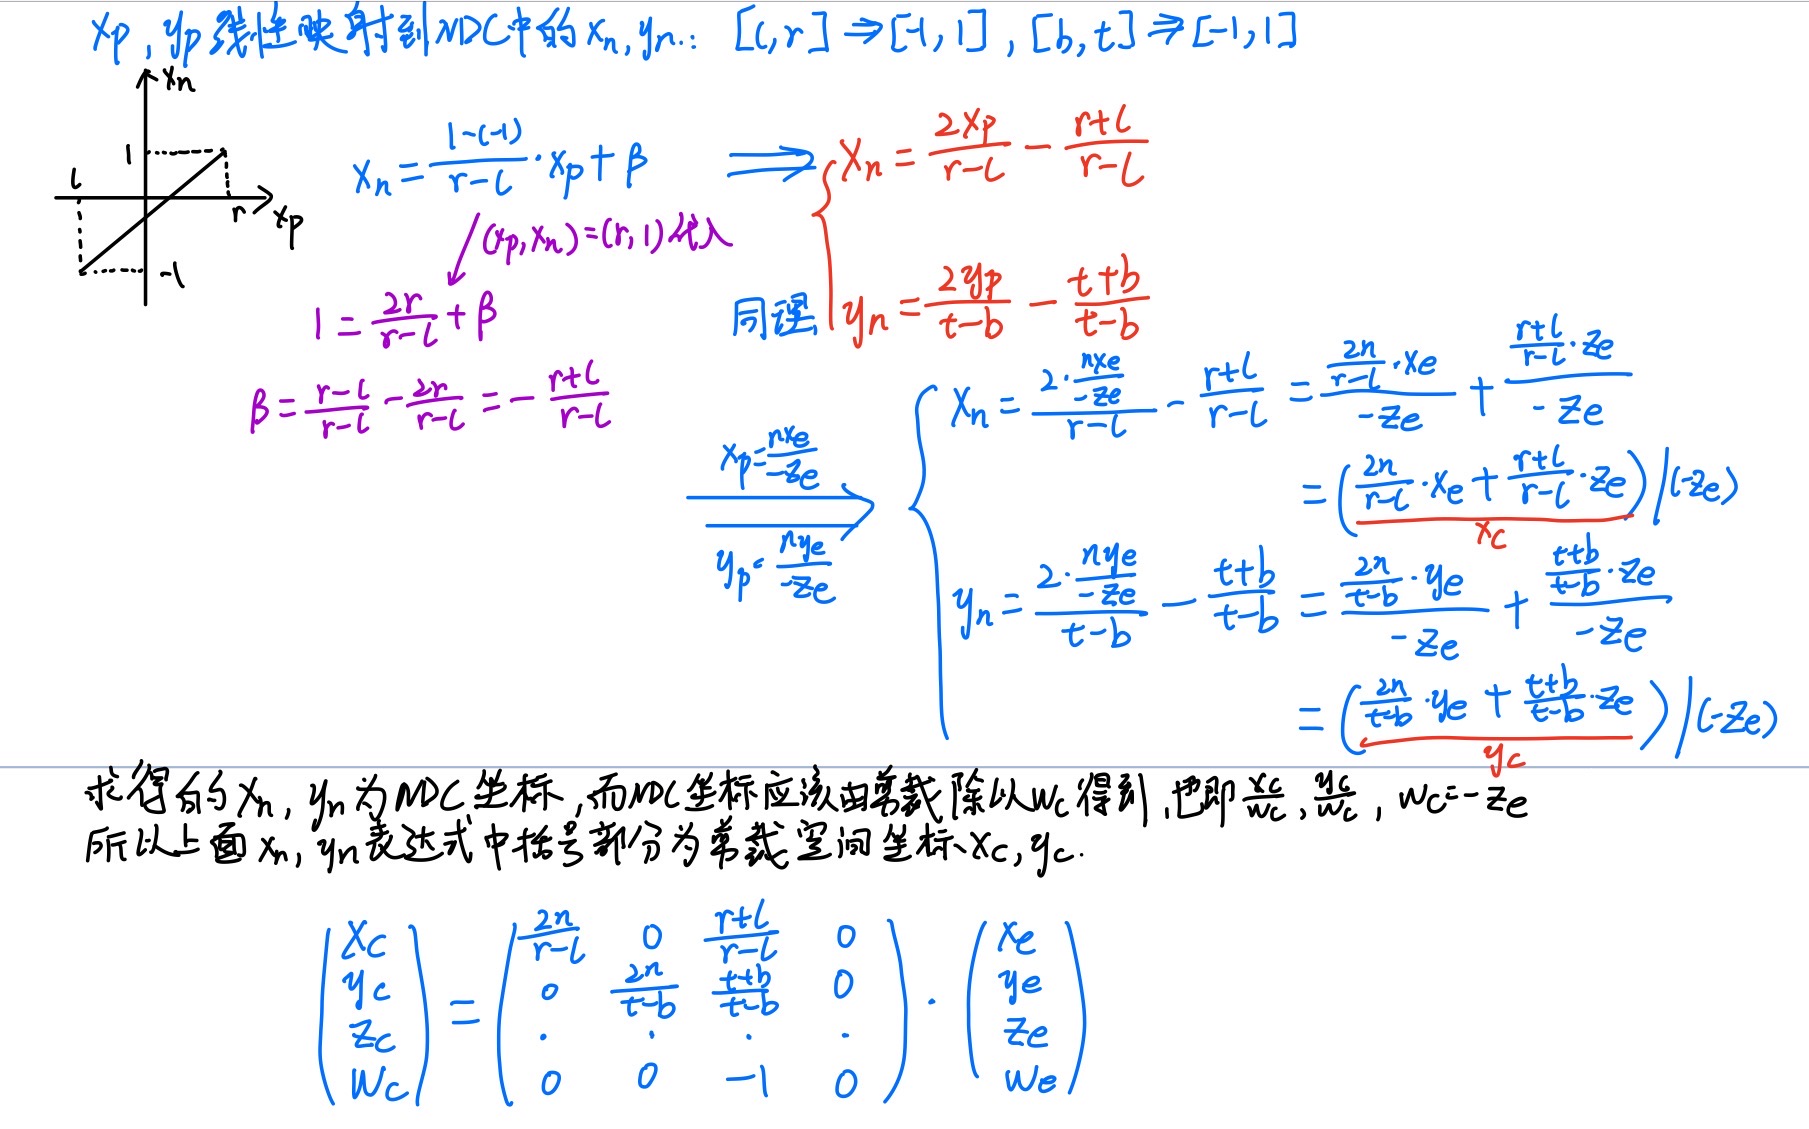 xp, yp线性映射到NDC中的xn, yn: [l, r] ⇒ [-1, 1], [b, t] ⇒ [-1, 1]
xn
1
l
r
xp
-1
xn = (1-(-1))/(r-l) · xp + β
⟹
xn = 2xp/(r-l) - (r+l)/(r-l)
(xp, xn) = (r, 1) 代入
1 = 2r/(r-l) + β
β = (r-l)/(r-l) - 2r/(r-l) = - (r+l)/(r-l)
同理
yn = 2yp/(t-b) - (t+b)/(t-b)
xp = nxe/-ze
yp = nye/-ze
xn = (2·(nxe/-ze))/(r-l) - (r+l)/(r-l) = (2n/(r-l) · xe)/-ze + ((r+l)/(r-l) · ze)/-ze
= (2n/(r-l) · xe + (r+l)/(r-l) · ze)/(-ze)
xc
yn = (2·(nye/-ze))/(t-b) - (t+b)/(t-b) = (2n/(t-b) · ye)/-ze + ((t+b)/(t-b) · ze)/-ze
= (2n/(t-b) · ye + (t+b)/(t-b) · ze)/(-ze)
yc
求得的xn, yn为NDC坐标, 而NDC坐标应该由剪裁除以wc得到, 也即xc/wc, yc/wc, wc = -ze
所以上面xn, yn表达式中括号部分为剪裁空间坐标xc, yc.
xc 2n/(r-l) 0 (r+l)/(r-l) 0 xe
yc 0 2n/(t-b) (t+b)/(t-b) 0 ye
zc = · · · · · ze
wc 0 0 -1 0 we